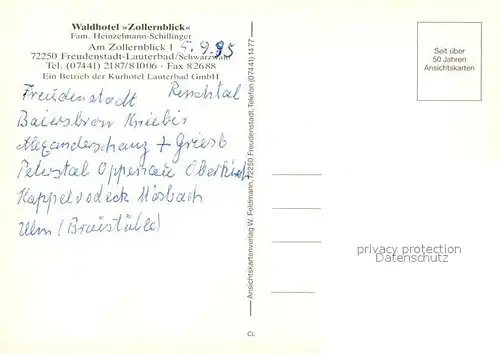 Waldhotel »Zollernblick«
Fam. Heinzelmann-Schillinger
Am Zollernblick 1 5.9.95
72250 Freudenstadt-Lauterbad/Schwarzwald
Tel. (07441) 2187/81006 · Fax 82688
Ein Betrieb der Kurhotel Lauterbad GmbH
Freudenstadt Renchtal
Baiersbron Kniebis
Alexanderschanz + Griesb
Peterstal Oppenau Oberkirch
Kappelrodeck Mösbach
Ulm (Braustüble)
Ansichtskartenverlag W. Feldmann, 72250 Freudenstadt, Telefon (07441) 1477
CL
Seit über
50 Jahren
Ansichtskarten
privacy protection
Datenschutz